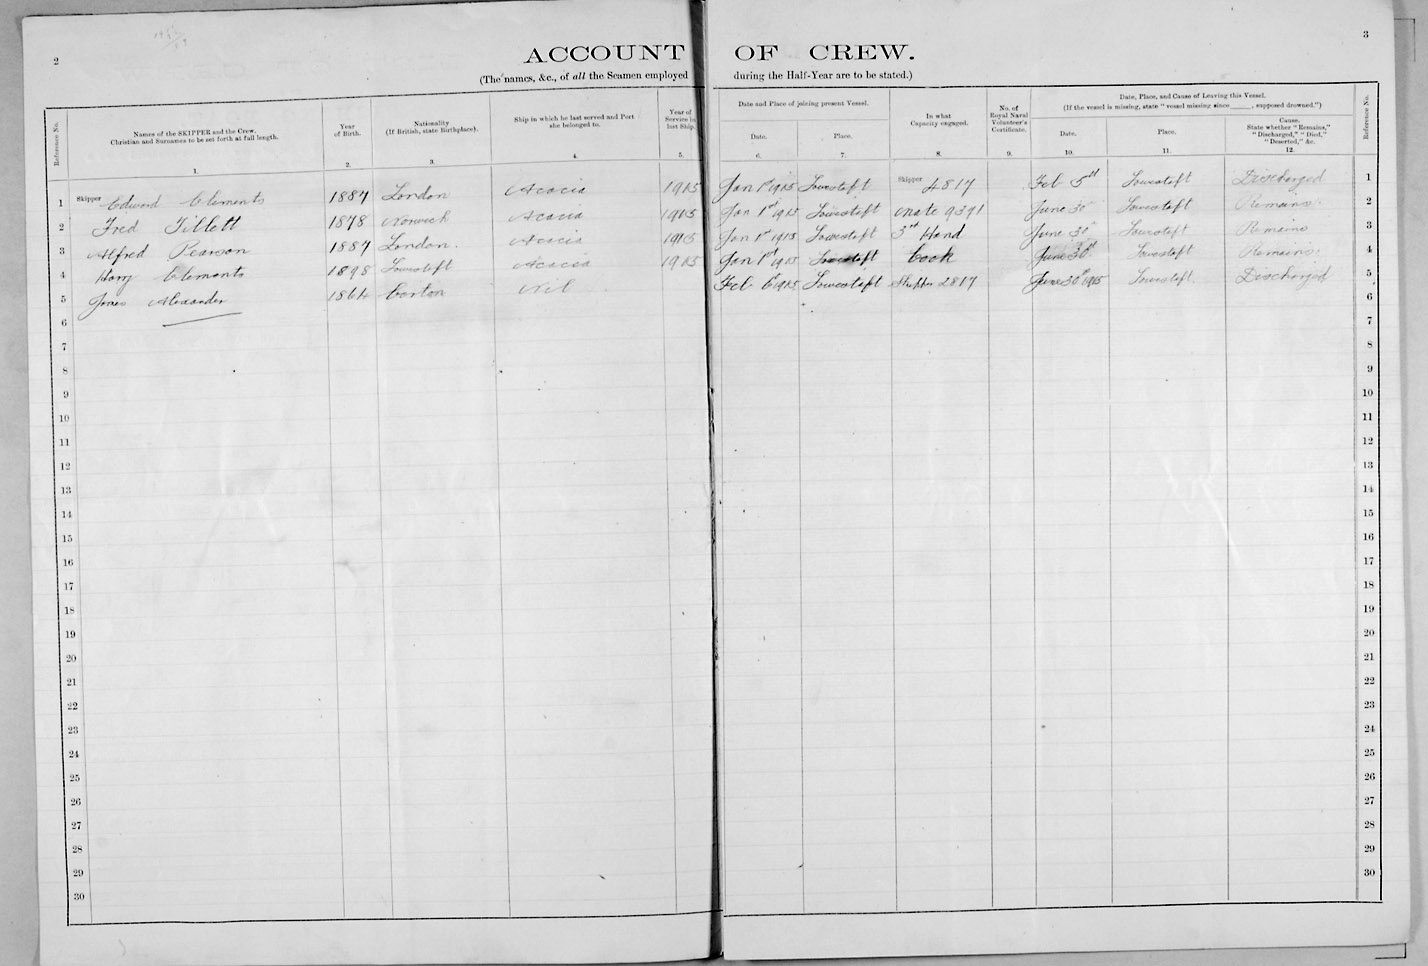 2
3
ACCOUNT OF CREW.
(The names, &c., of all the Seamen employed during the Half-Year are to be stated.)
Reference No.
Names of the SKIPPER and the Crew.
Christian and Surnames to be set forth at full length.
1.
Year
of Birth.
2.
Nationality
(If British, state Birthplace).
3.
Ship in which he last served and Port
she belonged to.
4.
Year of
Service in
last Ship.
5.
Date and Place of joining present Vessel.
Date.
6.
Place.
7.
In what
Capacity engaged.
8.
No. of
Royal Naval
Volunteer's
Certificate.
9.
Date, Place, and Cause of Leaving this Vessel.
(If the vessel is missing, state "vessel missing since_____, supposed drowned.")
Date.
10.
Place.
11.
Cause.
State whether "Remains,"
"Discharged," "Died,"
"Deserted," &c.
12.
Reference No.
1 Skipper Edward Clements 1887 London Acacia 1915 Jan 1st 1915 Lowestoft Skipper 4817 Feb 5th Lowestoft Discharged 1
2 Fred Tillett 1878 Norwich Acacia 1915 Jan 1st 1915 Lowestoft Mate 9391 June 30 Lowestoft Remains 2
3 Alfred Pearson 1887 London Acacia 1915 Jan 1st 1915 Lowestoft 3rd Hand June 30 Lowestoft Remains 3
4 Harry Clements 1898 Lowestoft Acacia 1915 Jan 1st 1915 Lowestoft Cook June 30th Lowestoft Remains 4
5 James Alexander 1864 Corton Nil Feb 6 1915 Lowestoft Skipper 2817 June 30th 1915 Lowestoft Discharged 5
6 6
7 7
8 8
9 9
10 10
11 11
12 12
13 13
14 14
15 15
16 16
17 17
18 18
19 19
20 20
21 21
22 22
23 23
24 24
25 25
26 26
27 27
28 28
29 29
30 30